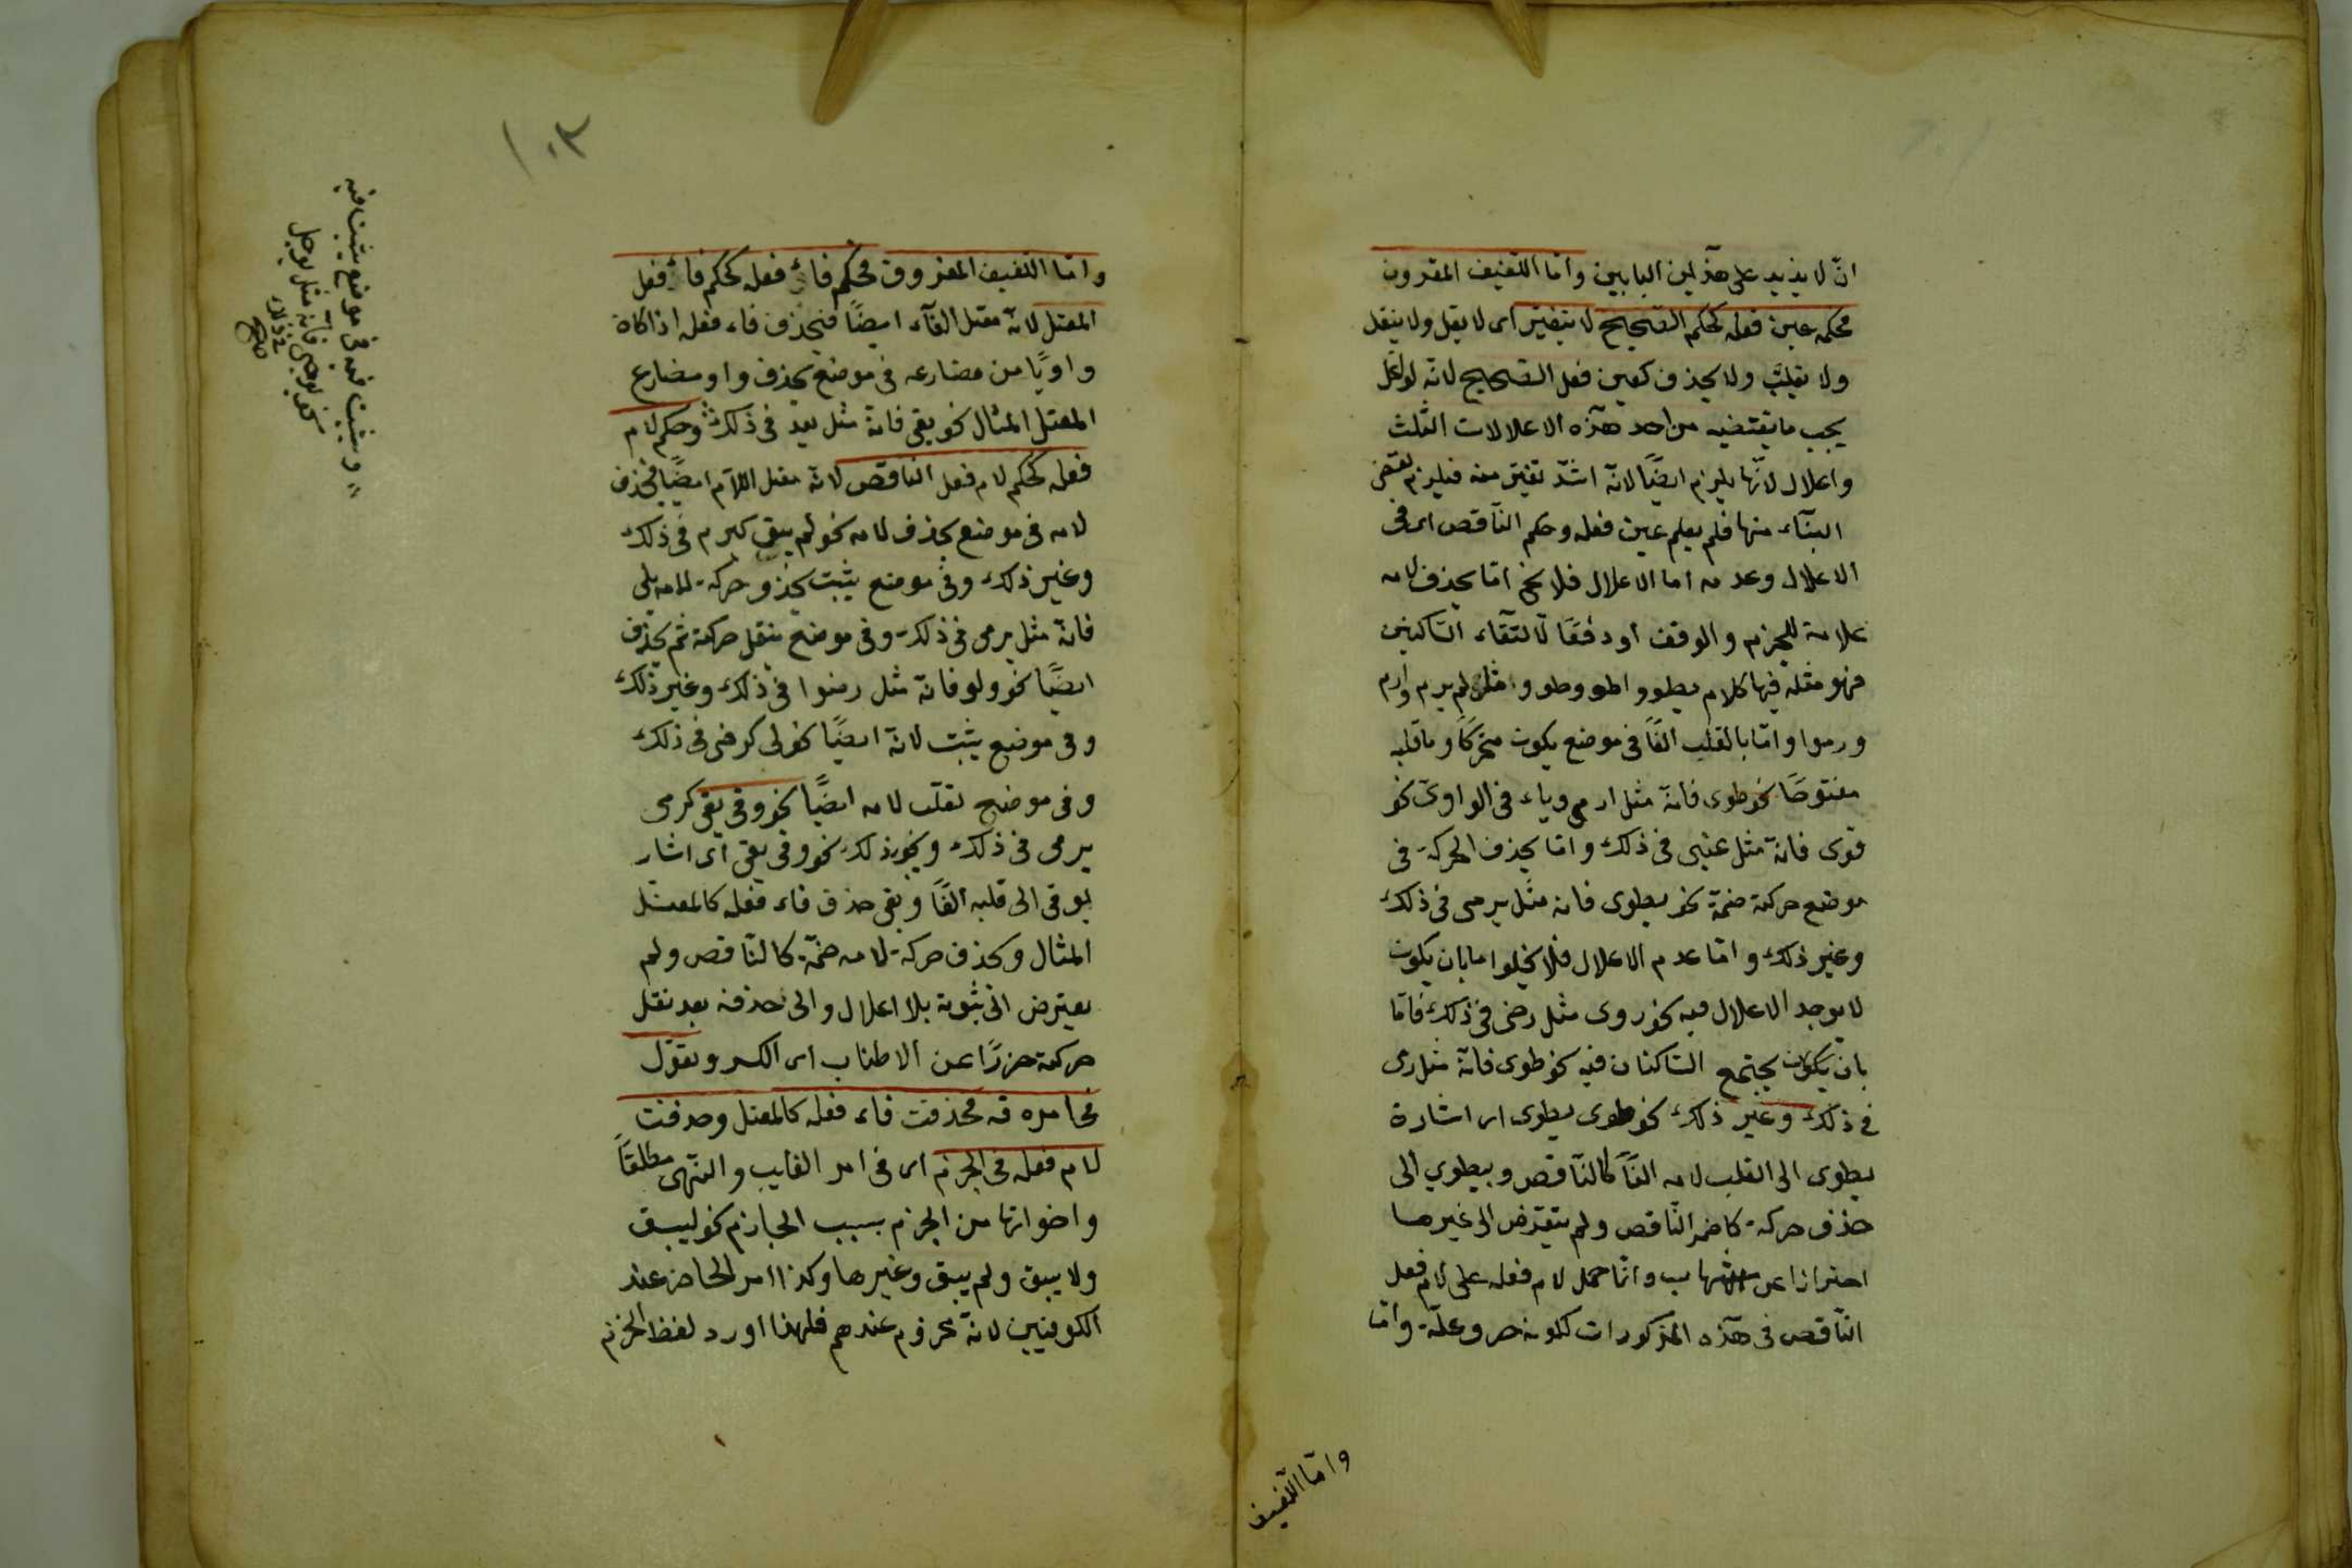 انّ لا يذيد على هذين البابين وامّا اللّفيف المقرون
فحكم عين فعله كحكم الصّحيح لا يتغيّر اى لا يقل ولا ينقل
ولا يقلب ولا يحذف كعين فعل الصّحيح لانّه لو اعل
يجب ما يقتضيه من احد هذه الاعلالات الثّلث
واعلال لامها يلزم ايضًا لانّه اشدّ تغيّر منه فيلزم نقض
البنآء منها فلم يعلم عين فعله وحكم النّاقص اى فى
الاعلال وعدمه اما الاعلال فلا يخ امّا بحذف لامه
علامة للجزم والوقف او دفعًا لالتقاء السّاكنين
فهو مثله فيها كلام يطو واطو وطووا مثل لم يرم وارم
ورموا وامّا بالقلب الفًا فى موضع يكون متحرّكًا وما قبله
مفتوحًا نحو طوى فانّه مثل ارمى وياء فى الواوىّ نحو
قوى فانّه مثل غبى فى ذلك وامّا بحذف الحركة فى
موضع حركته ضمّة نحو يطوى فانه مثل يرمى فى ذلك
وغير ذلك وامّا عدم الاعلال فلا يخلوا ما بان يكون
لا يوجد الاعلال فيه نحو روى مثل رضى فى ذلك فامّا
بان يكون يجتمع السّاكنان فيه نحو طوى فانّه مثل رمى
فى ذلك وغير ذلك نحو طوى يطوى اى اشارة
بطوى الى القلب لامه الفًا كالنّاقص وبيطوي الى
حذف حركة كامر النّاقص ولم يتعرّض الى غيرها
احترازا عن وانّما حمل لام فعله على لام فعل
النّاقص فى هذه المذكورات لكونه حرو علّة وامّا
وامّا اللّفيف
١٠٣
وامّا اللّفيف المفروق فحكم فاء فعله كحكم فاء فعل
المعتل لانّه معتل الفآء ايضًا فيحذف فاء فعله اذا كان
واويًا من مضارعه فى موضع يحذف واو مضارع
المعتل المثال نحو يقى فانّه مثل يعد فى ذلك وحكم لام
فعله كحكم لام فعل النّاقص لانّه معتل اللّام ايضًا فيحذف
لامه فى موضع يحذف لامه نحو لم يق كيرم فى ذلك
وغير ذلك وفى موضع يثبت يحذف حركة لامه يلى
فانّه مثل يرمى فى ذلك وفى موضع ينقل حركته ثم يحذف
ايضًا نحو ولو فانّه مثل رضوا فى ذلك وغير ذلك
وفى موضع يثبت لانّه ايضًا نحو لى كرضى فى ذلك
وفى موضع تقلب لامه ايضًا نحو وقى يقى كرمى
يرمى فى ذلك ونحو ذلك نحو وقى يقى اى اشار
بوقى الى قلبه الفًا وبقى حذف فاء فعله كالمعتل
المثال وبحذف حركة لامه ضمّة كالنّاقص ولم
يعترض الى ثبوته بلا اعلال والى حذفه بعد نقل
حركته حزرًا عن الاطناب اى الكسر وتقول
فى امره قه فحذفت فاء فعله كالمعتل وحذفت
لام فعله فى الجزم اى فى امر الغايب والنّهى مطلقًا
واخواتها من الجزم بسبب الجازم نحو ليق
ولا يق ولم يق وغيرها وكذا امر الحاضر عند
الكوفيين لانّه مجزوم عندهم فلهذا اورد لفظ الجزم
ويثبت فيه فى موضع يثبت فيه
كنحو يوجى فانّه مثل يوجل
فى ذلك
صح